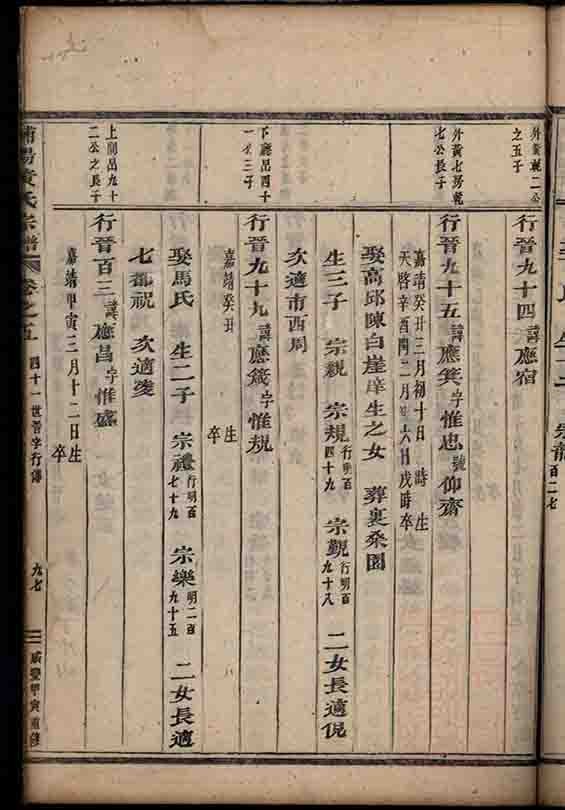 外黃乾二公
之五子
行晉九十四 諱 應宿
外黃七房乾
七公長子
行晉九十五 諱 應箕 字 惟忠 號 仰齋
嘉靖癸丑三月初十日 時 生
天啓辛酉四二月 六日戌時卒
娶高邱陳白崖庠生之女 葬裏桑園
生三子 宗親 宗規 行明百四十九 宗觀 行明百九十八 二女長適倪
次適市西周
下廳品四十
一公三子
行晉九十九 諱 應箴 字 惟規
嘉靖癸丑 生
卒
娶馬氏 生二子 宗禮 行明百七十九 宗樂 明二百九十五 二女長適
七都祝 次適凌
上 品九十
二公之長子
行晉百三 諱 應昌 字 惟盛
嘉靖甲寅三月十二日生
卒
浦陽黃氏宗譜 卷之五 四十一世晉字行傳 九七 咸豐甲寅重修
宗龍
百二七